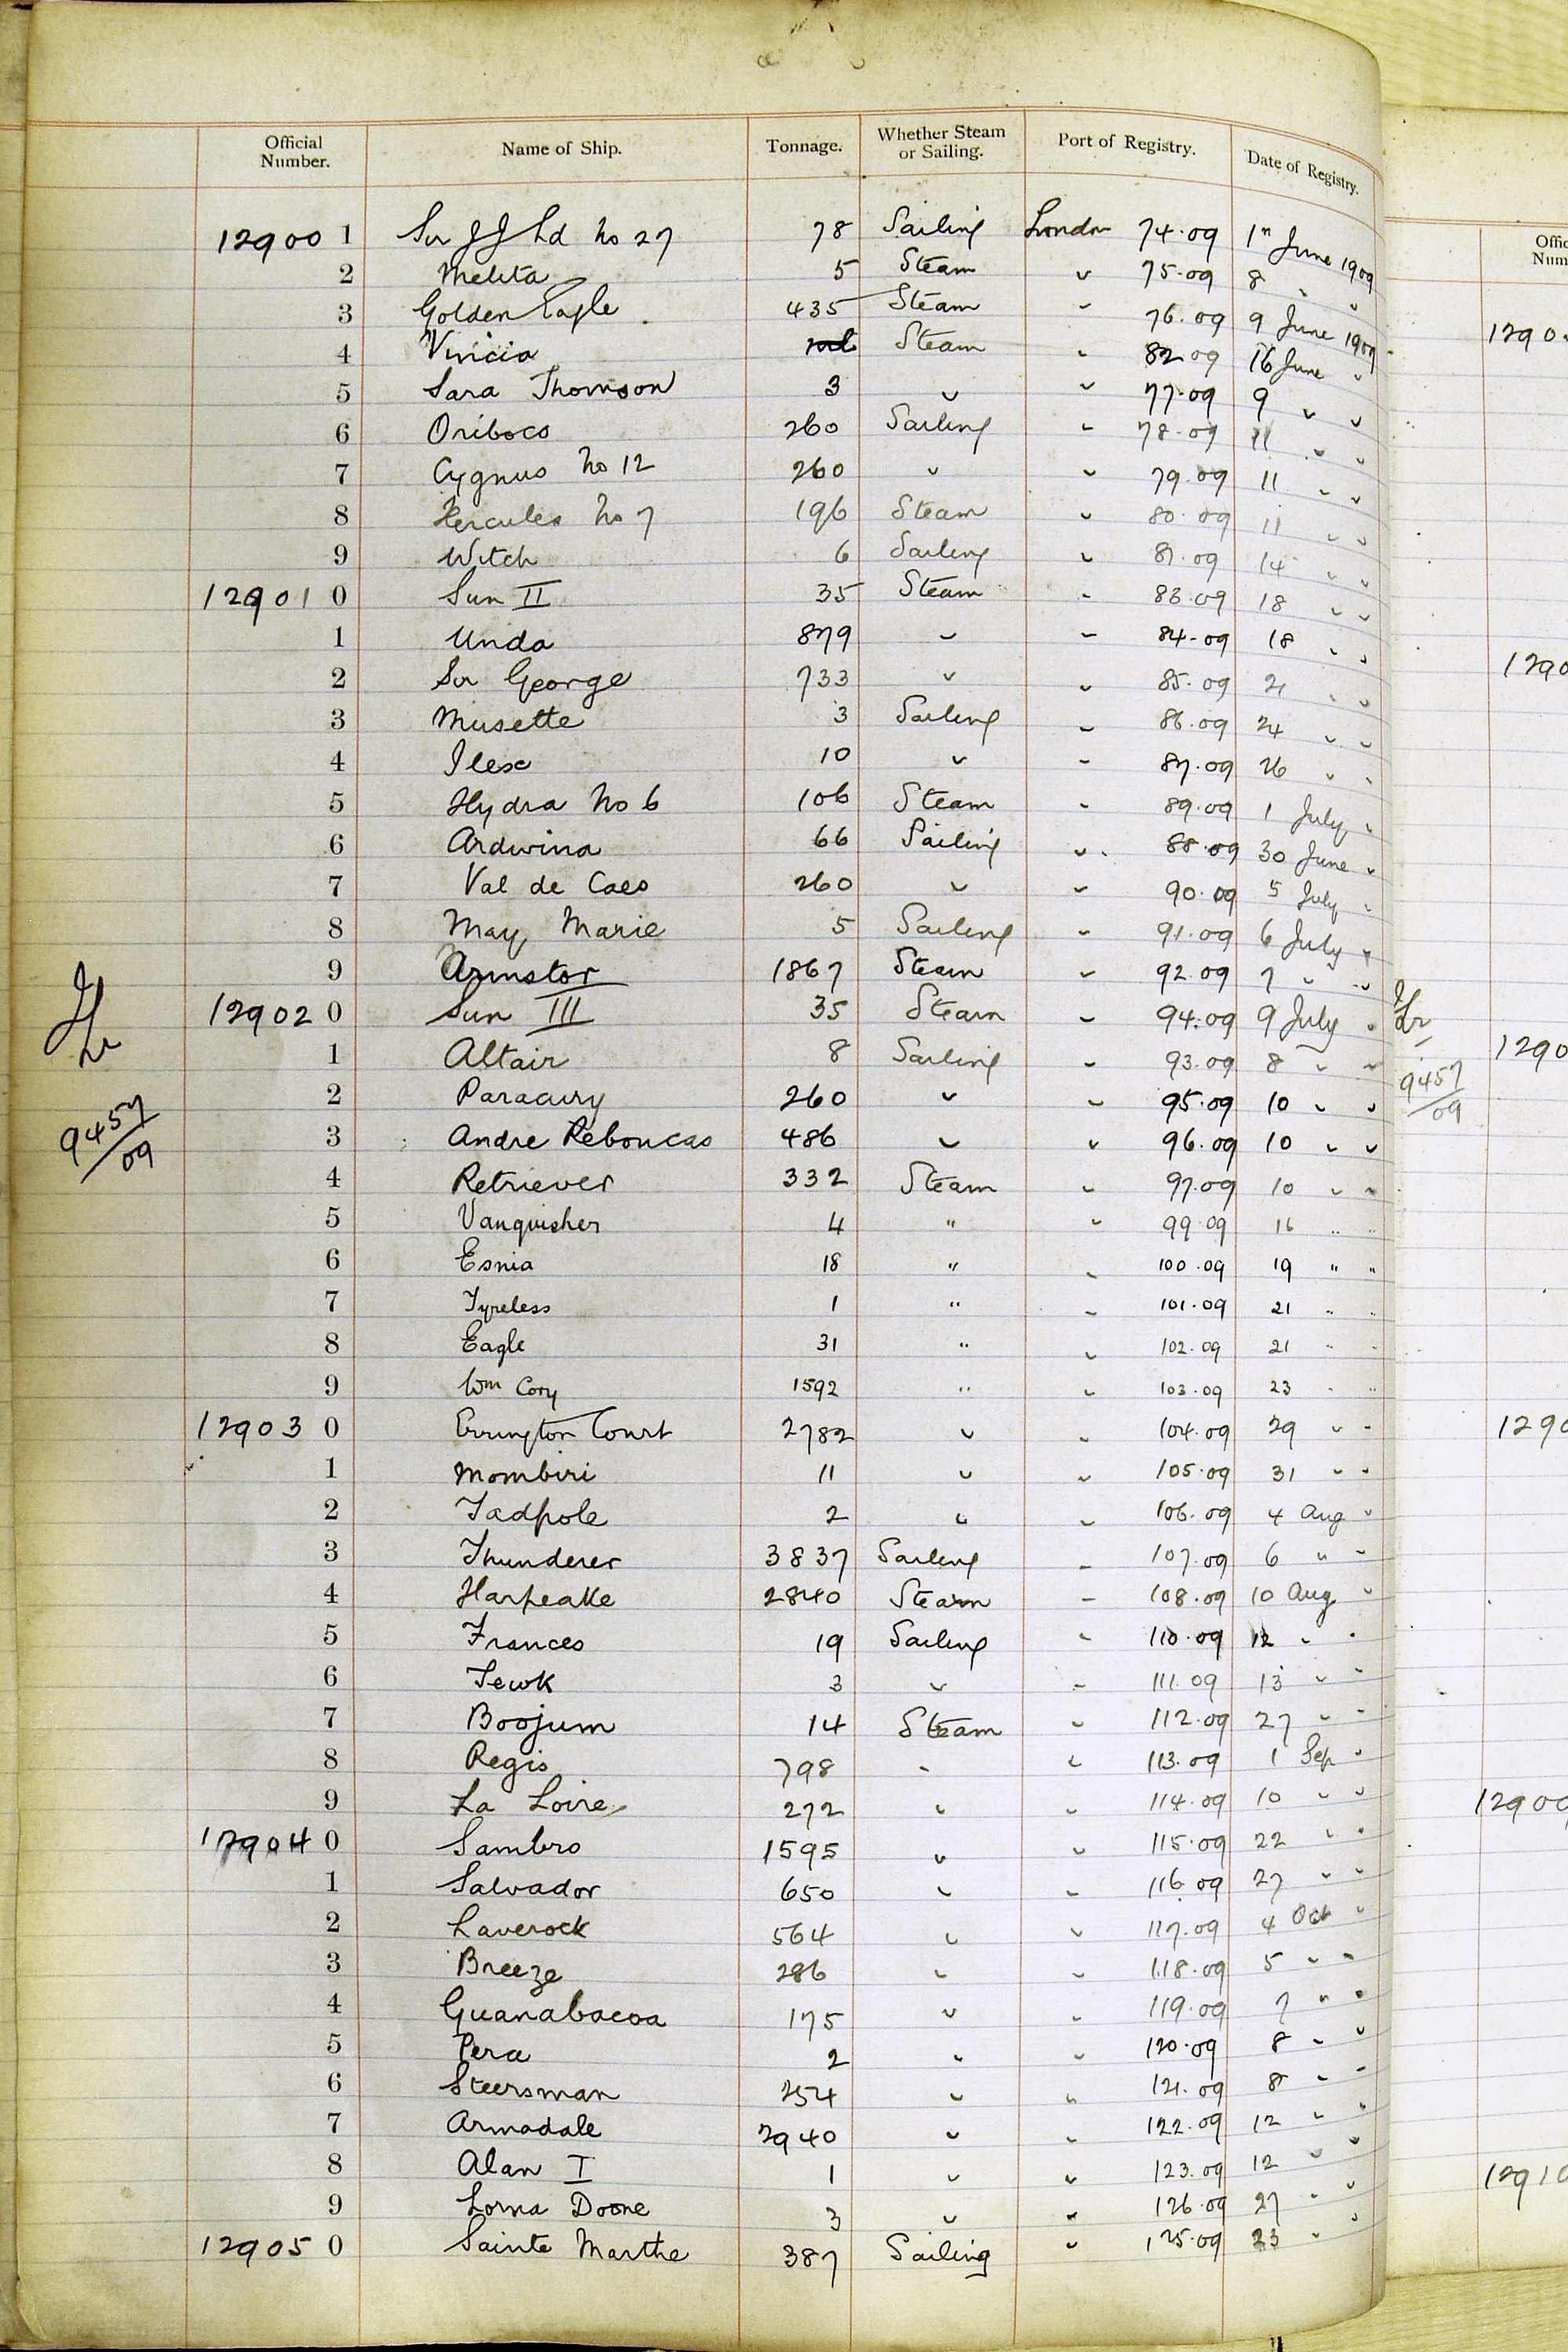 Official Number. Name of Ship. Tonnage. Whether Steam or Sailing. Port of Registry. Date of Registry.
12900 1 Sir J J Ld No 27 78 Sailing London 74.09 1st June 1909
2 Melita 5 Steam " 75.09 8 " "
3 Golden Eagle 435 Steam " 76.09 9 June 1909
4 Vinicia Steam " 82.09 16 June "
5 Sara Thomson 3 " " 77.09 9 " "
6 Oriboco 260 Sailing " 78.09 11 " "
7 Cygnus No 12 260 " " 79.09 11 " "
8 Hercules No 7 196 Steam " 80.09 11 " "
9 Witch 6 Sailing " 81.09 14 " "
12901 0 Sun II 35 Steam " 83.09 18 " "
1 Unda 879 " " 84.09 18 " "
2 Sir George 733 " " 85.09 21 " "
3 Musette 3 Sailing " 86.09 24 " "
4 Ilex 10 " " 87.09 26 " "
5 Hydra No 6 106 Steam " 89.09 1 July "
6 Ardwina 66 Sailing " 88.09 30 June "
7 Val de Caes 260 " " 90.09 5 July "
8 May Marie 5 Sailing " 91.09 6 July "
9 Arnstor 1867 Steam " 92.09 7 " "
12902 0 Sun III 35 Steam " 94.09 9 July "
1 Altair 8 Sailing " 93.09 8 " "
2 Paracury 260 " " 95.09 10 " "
9457/09
3 Andre Reboucas 486 " " 96.09 10 " "
4 Retriever 332 Steam " 97.09 10 " "
5 Vanquisher 4 " " 99.09 16 " "
6 Esnia 18 " " 100.09 19 " "
7 Tyreless 1 " " 101.09 21 " "
8 Eagle 31 " " 102.09 21 " "
9 Wm Cory 1592 " " 103.09 23 " "
12903 0 Errington Court 2782 " " 104.09 29 " "
1 Mombiri 11 " " 105.09 31 " "
2 Tadpole 2 " " 106.09 4 Aug "
3 Thunderer 3837 Sailing " 107.09 6 " "
4 Harpeake 2840 Steam " 108.09 10 Aug "
5 Frances 19 Sailing " 110.09 12 " "
6 Tewk 3 " " 111.09 13 " "
7 Boojum 14 Steam " 112.09 27 " "
8 Regis 798 " " 113.09 1 Sep "
9 La Loire 272 " " 114.09 10 " "
12904 0 Sambro 1595 " " 115.09 22 " "
1 Salvador 650 " " 116.09 27 " "
2 Laverock 564 " " 117.09 4 Oct "
3 Breeze 286 " " 118.09 5 " "
4 Guanabacoa 175 " " 119.09 7 " "
5 Pera 2 " " 120.09 8 " "
6 Steersman 254 " " 121.09 8 " "
7 Armadale 2940 " " 122.09 12 " "
8 Alan I 1 " " 123.09 12 " "
9 Lorna Doone 3 " " 126.09 27 " "
12905 0 Sainte Marthe 387 Sailing " 125.09 23 " "
9457/09